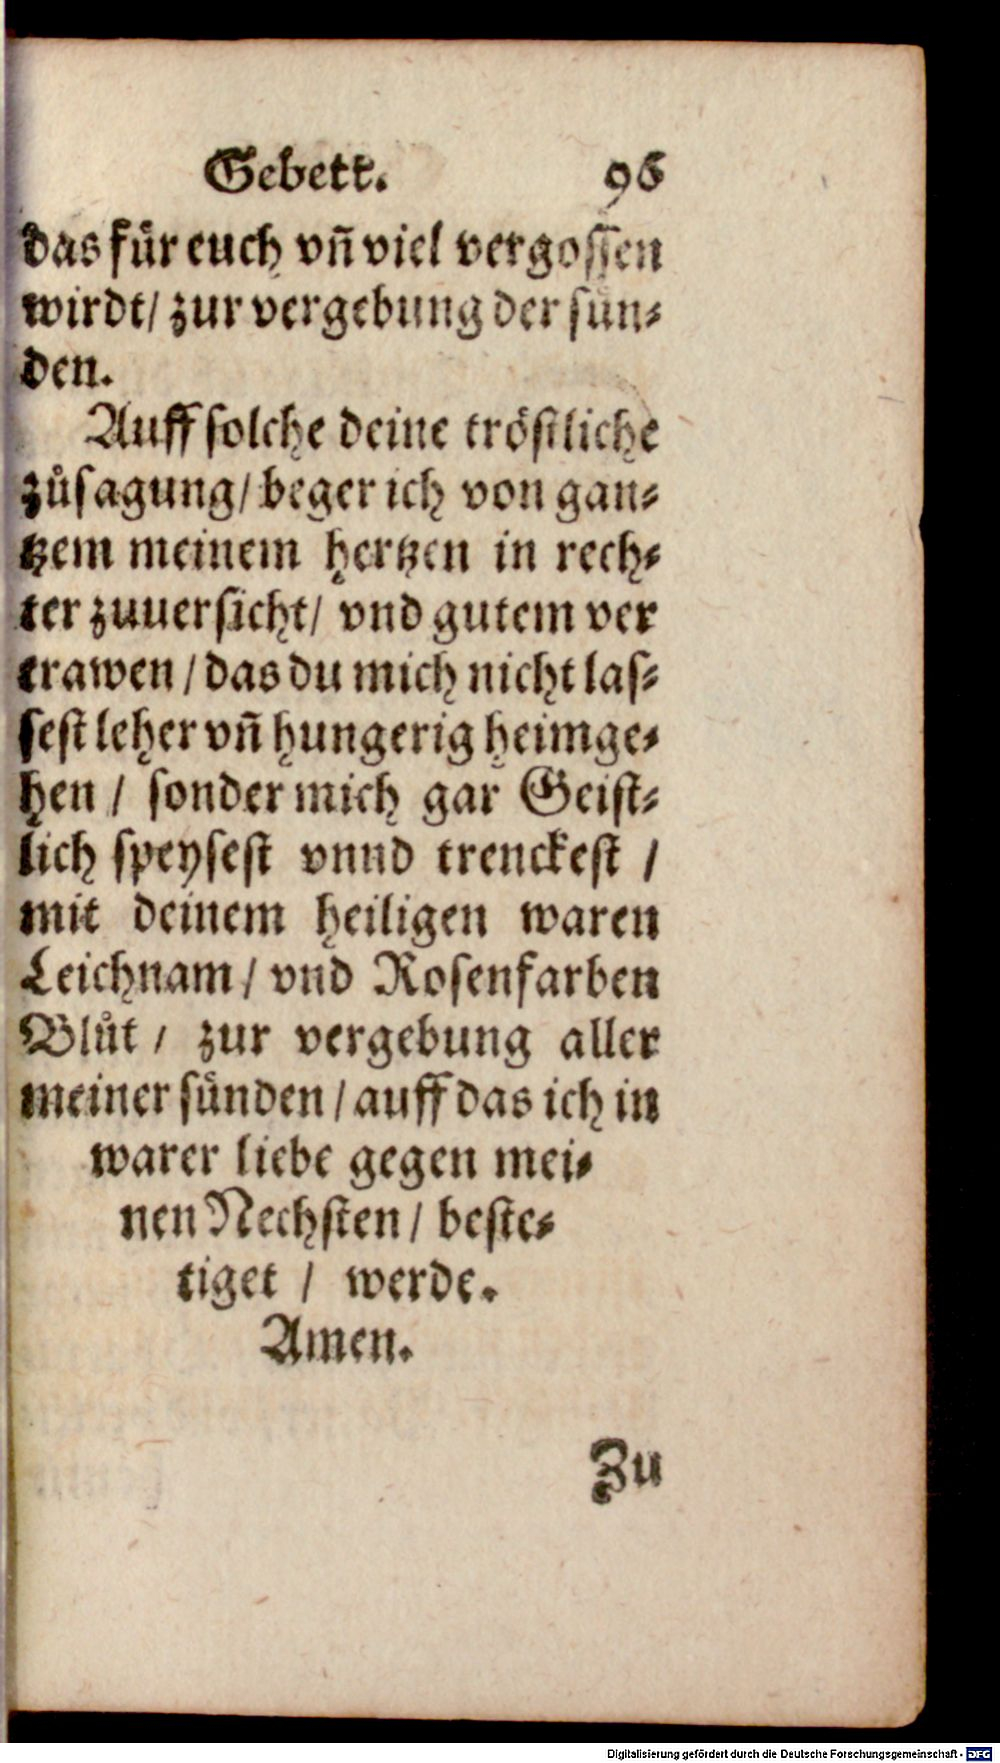 Gebett. 96
das für euch vñ viel vergossen
wirdt/ zur vergebung der sün-
den.
Auff solche deine tröstliche
zůsagung/ beger ich von gan-
tzem meinem hertzen in rech-
ter zuuersicht/ vnd gutem ver
trawen/ das du mich nicht las-
sest leher vñ hungerig heimge-
hen / sonder mich gar Geist-
lich speysest vnnd trenckest /
mit deinem heiligen waren
Leichnam/ vnd Rosenfarben
Blůt/ zur vergebung aller
meiner sünden/ auff das ich in
warer liebe gegen mei-
nen Nechsten/ beste-
tiget / werde.
Amen.
Zu
Digitalisierung gefördert durch die Deutsche Forschungsgemeinschaft - DFG